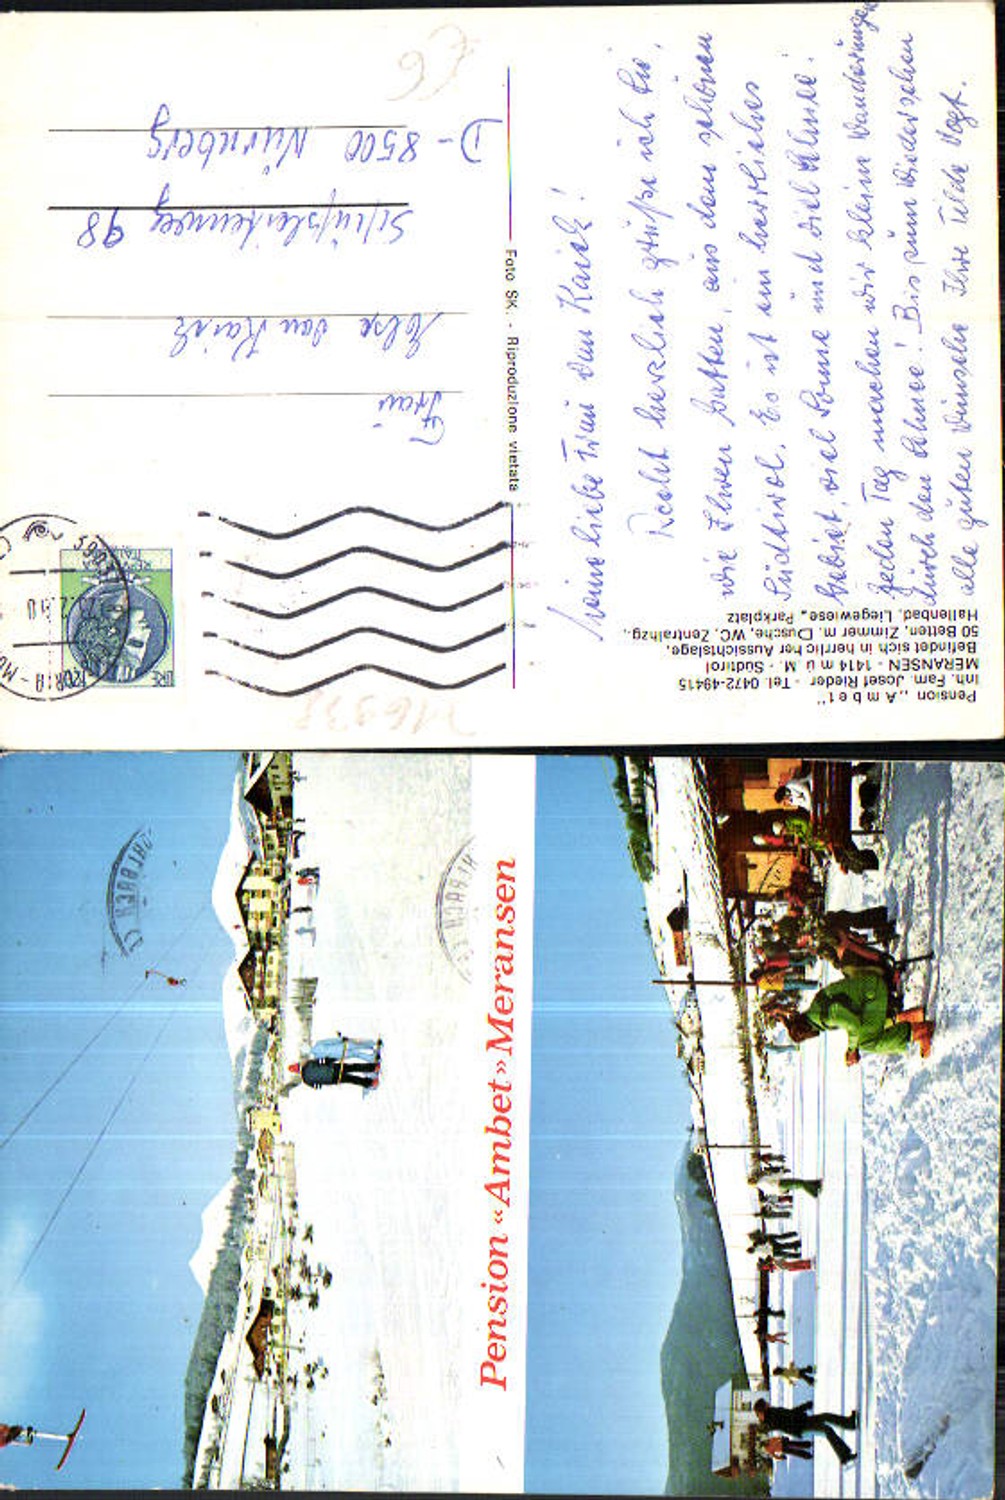 Pension „Ambet"
Inh. Fam. Josef Rieder - Tel. 0472-49415
MERANSEN - 1414 m ü. M. - Südtirol
Befindet sich in herrlicher Aussichtslage.
50 Betten, Zimmer m. Dusche, WC, Zentralhzg.,
Hallenbad, Liegewiese, Parkplatz
Meine liebe Frau van Kaick!
Recht herzlich grüße ich Sie,
wie Ihren Gatten, aus dem schönen
Südtirol. Es ist ein herrliches
Gebiet, viel Sonne und viel Schnee!
Jeden Tag machen wir kleine Wanderungen
durch den Schnee! Bis zum Wiedersehen
alle guten Wünsche Ihre Tilde Vogt.
Foto SK. - Riproduzione vietata
LIRE 120
Frau
van Kaick
98
D-8500 Nürnberg
£6
216938
Pension «Ambet» Meransen